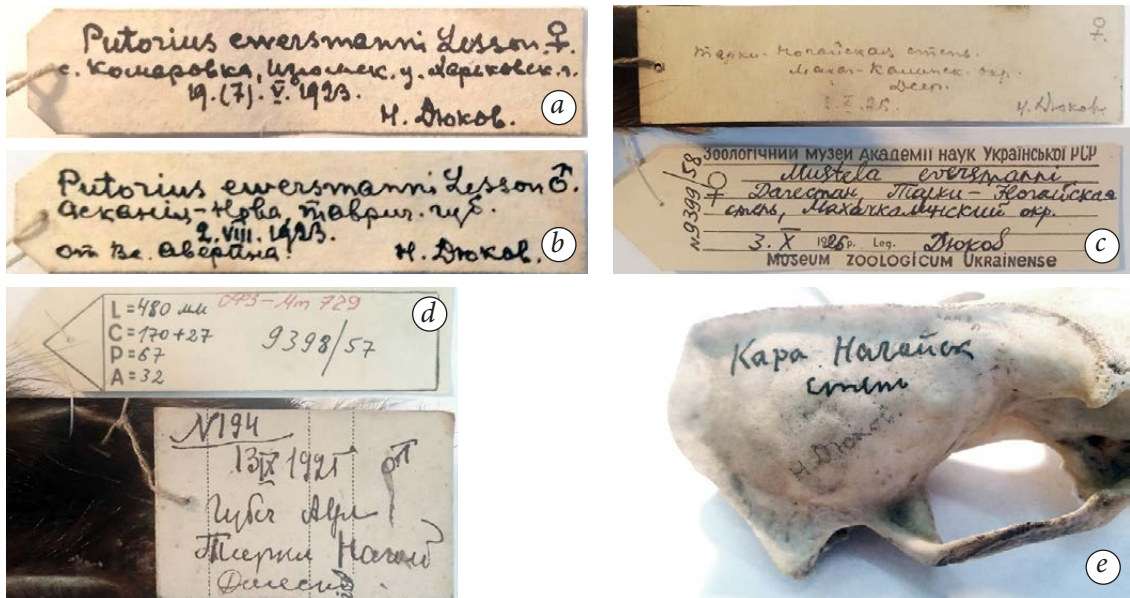 Putorius ewersmanni Lesson ♀.
с. Комаровка, Изюмск. у. Харьковск. г.
19. (7). V. 1923.
Н. Дюков.
a
Putorius ewersmanni Lesson ♂.
Аскания-Нова, Таврич. губ.
2. VIII. 1923.
от Вс. Аверина.
Н. Дюков.
b
♀
Тарки-Ногайская степь.
Махач-Калинск. окр.
X. 25.
Н. Дюков
Зоологічний музей Академії наук Української РСР
№9399/58
Mustela eversmanni
♀ Дагестан, Тарки-Ногайская
степь, Махачкалинский окр.
3. X 1925 р. Leg. Дюков
Museum zoologicum Ukrainense
c
L = 480 мм
C = 170+27
P = 67
A = 32
9398/57
d
N 194
13 IX 1925
♂
e
Кара Нагайск
степь
Н. Дюков.